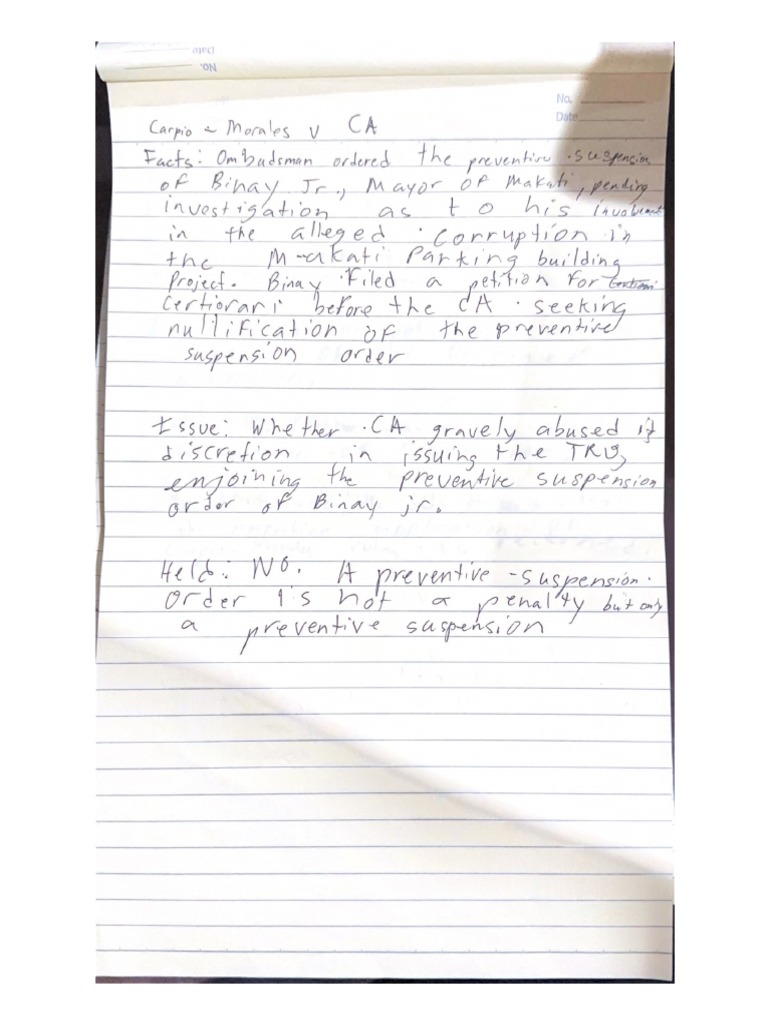 Date
No.
No.
Date
Carpio - Morales v CA
Facts: Ombudsman ordered the preventive suspension
of Binay Jr., Mayor of Makati, pending
investigation as to his involvement
in the alleged corruption in
the Makati Parking building
Project. Binay Filed a petition for
Certiorari before the CA seeking
nullification of the preventive
suspension order
Issue: Whether CA gravely abused its
discretion in issuing the TRO,
enjoining the preventive suspension
order of Binay jr.
Held: No. A preventive suspension
order is not a penalty but only
a preventive suspension